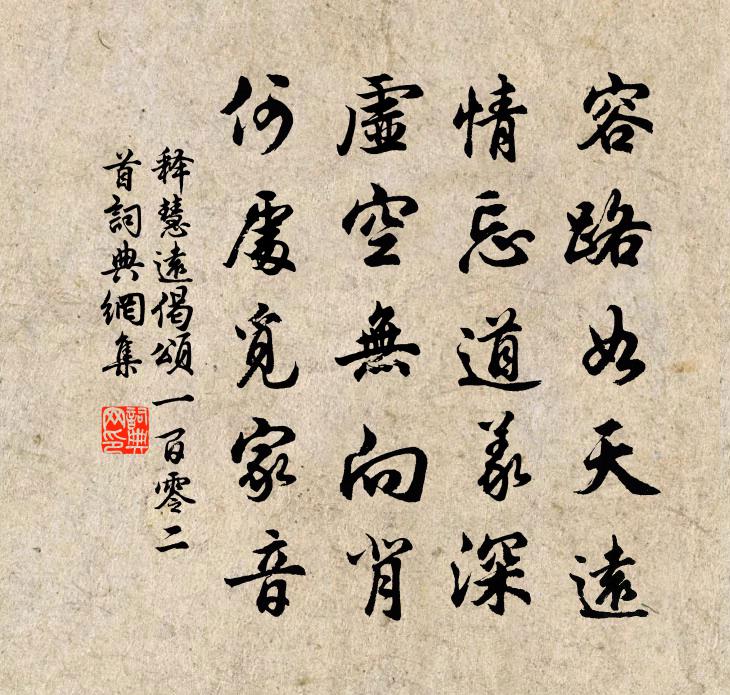 容路如天遠
情忘道義深
虛空無向背
何處覓家音
釋慧遠偈頌一百零二
首詞典網集
詞典
网印